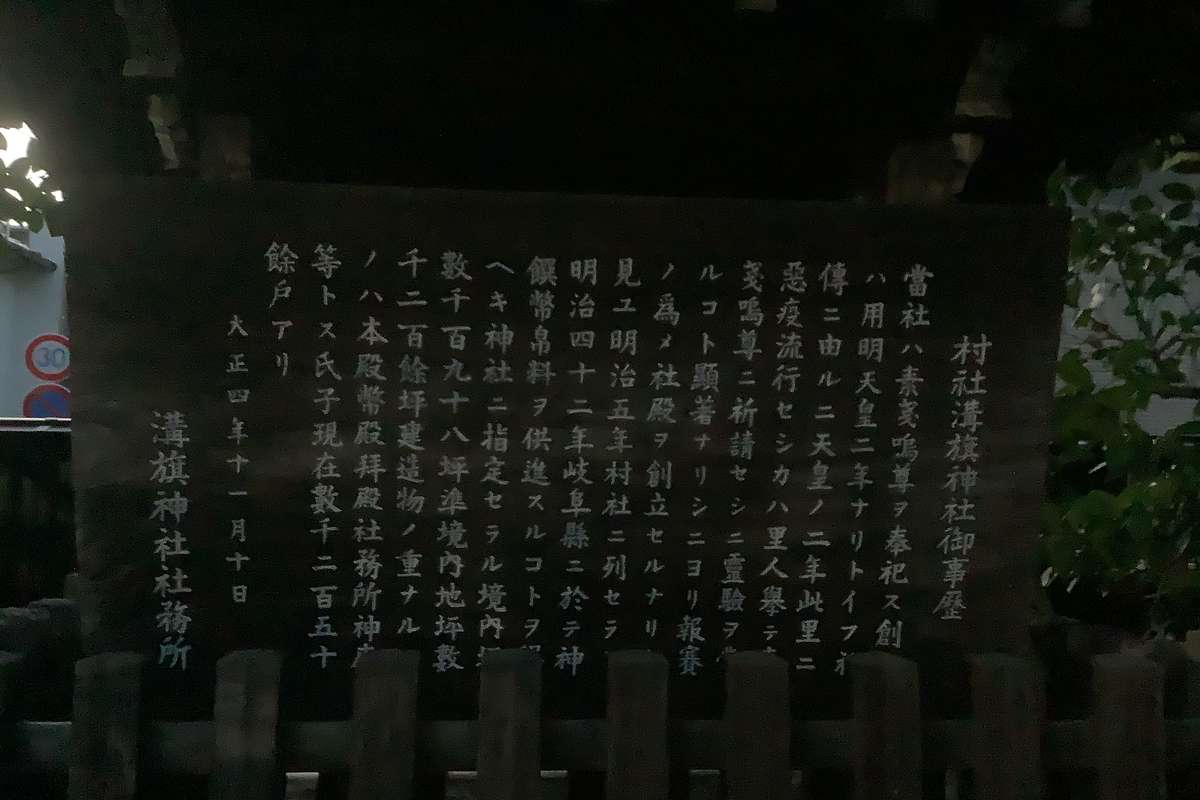 村社溝旗神社御事歴
當社ハ素戔嗚尊ヲ奉祀ス創
ハ用明天皇二年ナリトイフ
傳ニ由ルニ天皇ノ二年此里ニ
惡疫流行セシカハ里人擧テ
戔嗚尊ニ祈請セシニ靈驗ヲ
ルコト顯著ナリシニヨリ報賽
ノ爲メ社殿ヲ創立セルナリ
見ユ明治五年村社ニ列セラ
明治四十二年岐阜縣ニ於テ神
饌幣帛料ヲ供進スルコトヲ
ヘキ神社ニ指定セラル境內
數千百九十八坪準境內地坪數
千二百餘坪建造物ノ重ナル
ノハ本殿幣殿拜殿社務所神
等トス氏子現在數千二百五十
餘戶アリ
大正四年十一月十日
溝旗神社社務所
30